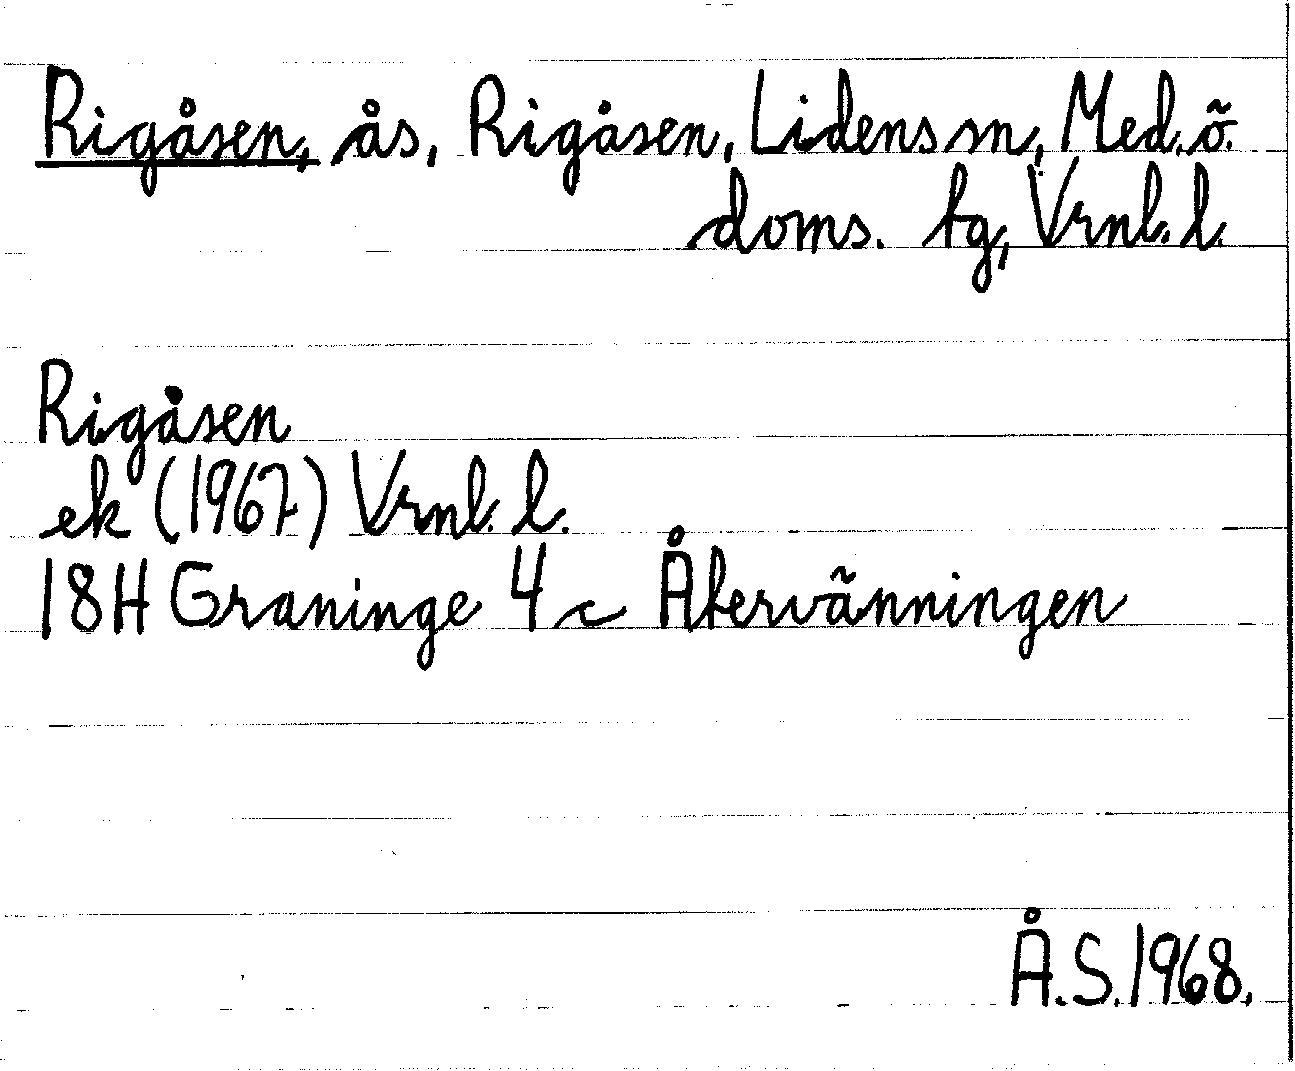 Rigåsen, ås, Rigåsen, Lidens sn, Med. ö.
doms. tg, Vrnl. l.
Rigåsen
ek (1967) Vrnl. l.
18H Graninge 4 c Återvänningen
Å.S. 1968.